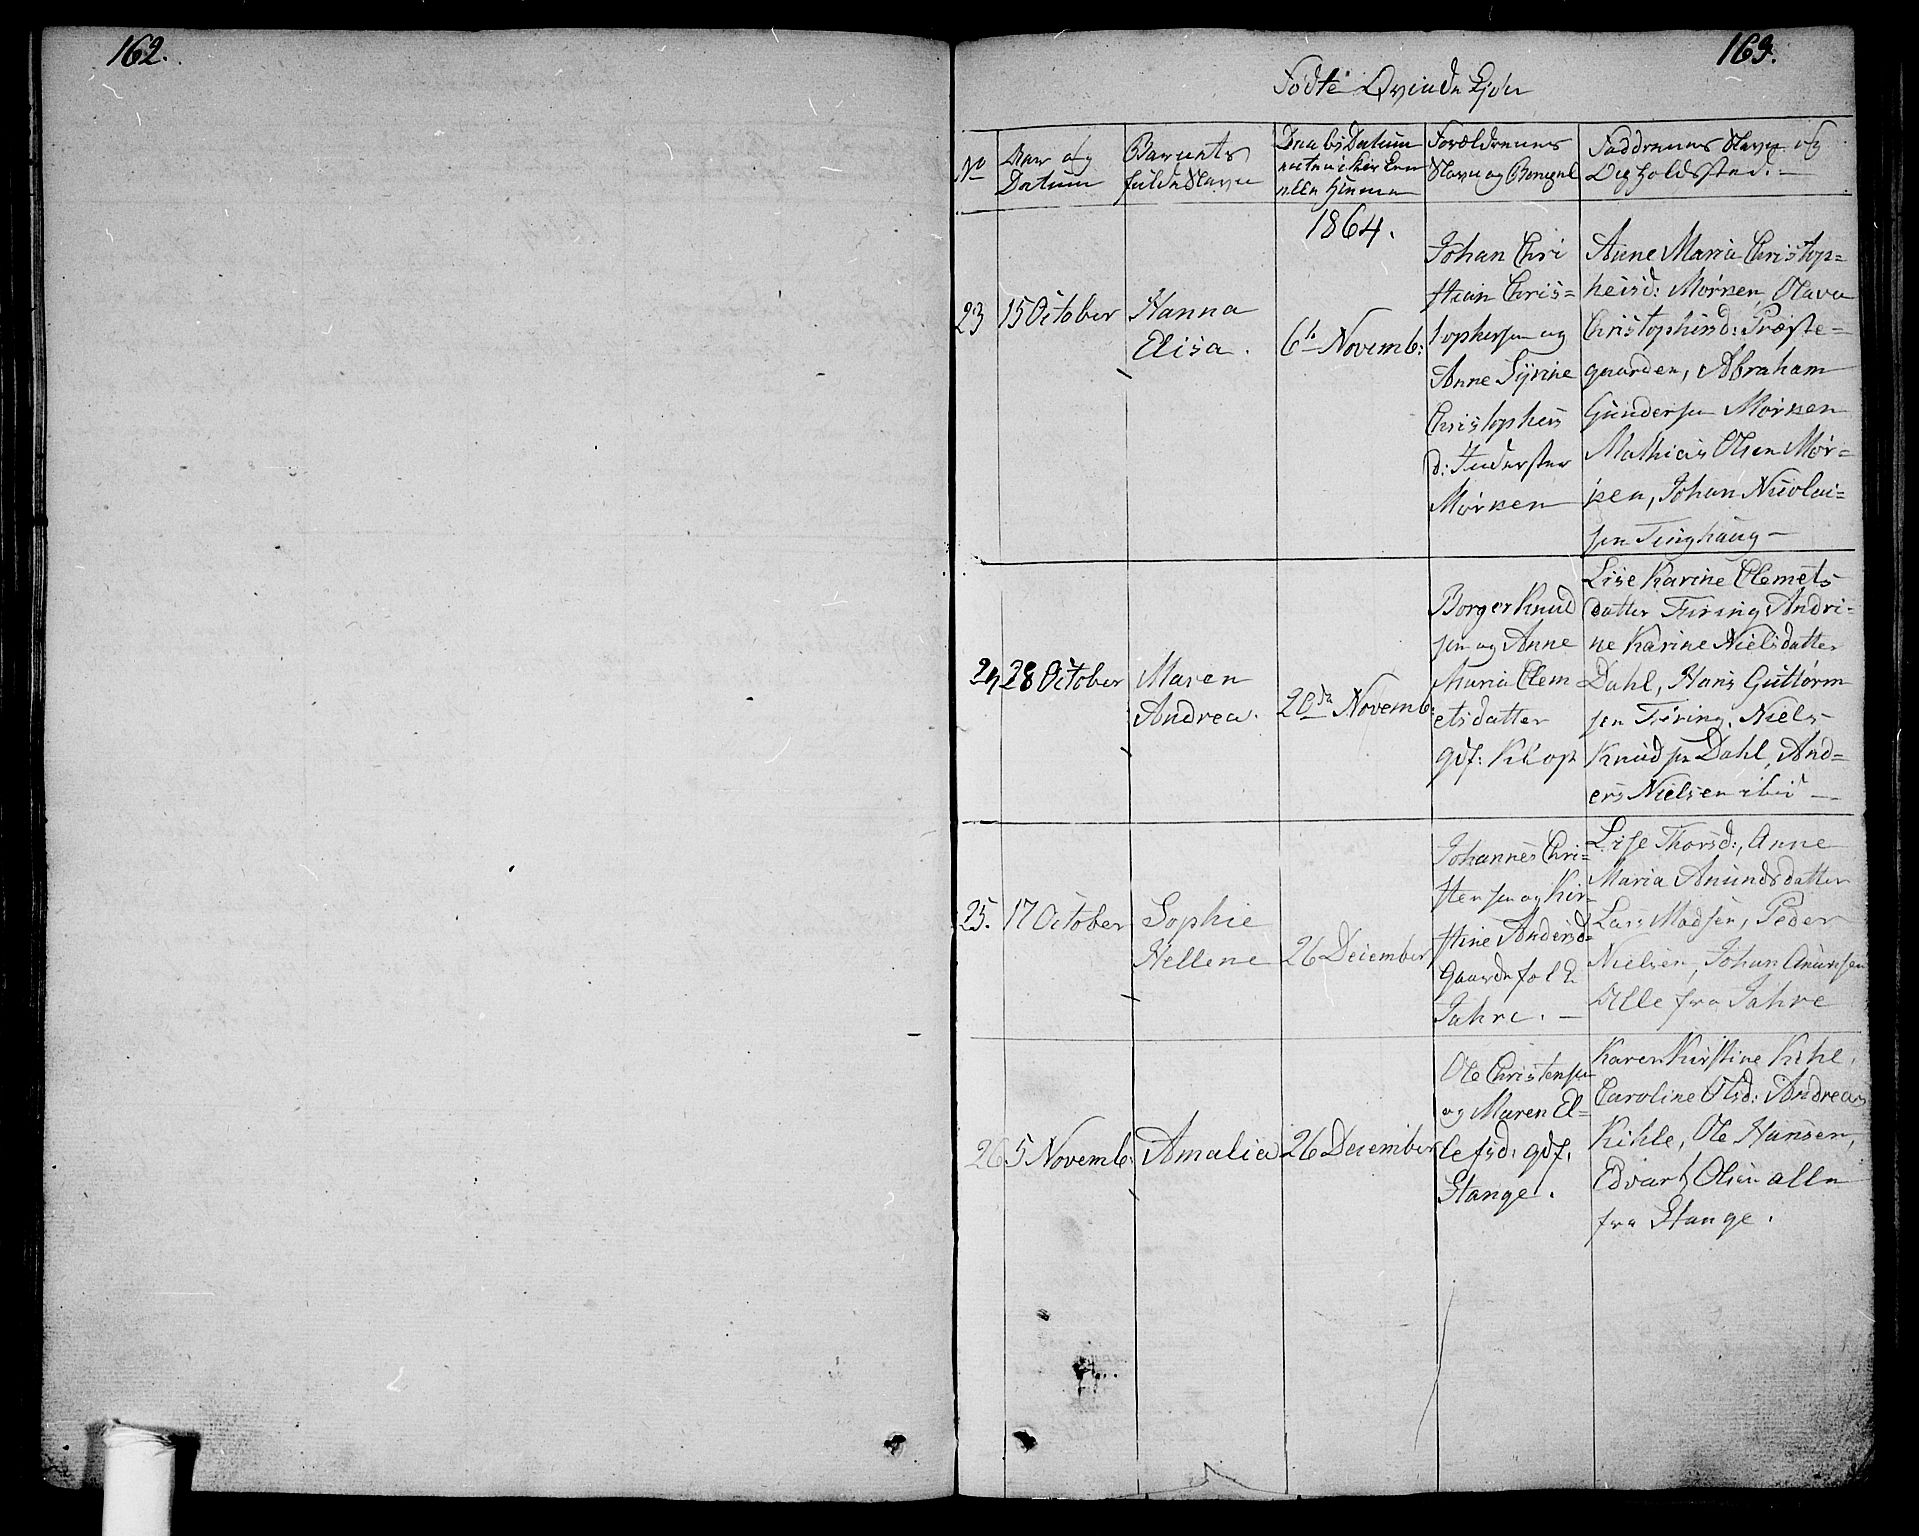 162.
163.
Fødte Qvindekjøn
No
Aar og
Datum
Barnets
fulde Navn
Daabs Datum
enten i Kirken
eller Hjemme
Forældrenes
Navn og
Faddrenes Navn og
Opholdssted.
1864.
23
15 October
Hanna
Elisa.
6te Novemb:
Johan Chri
stian Chris=
tophersen og
Anne Syrine
Christophers
d: Inderster
Mørken
Anne Maria Christop=
hersd: Mørken, Olava
Christophersd: Præste=
gaarden, Abraham
Gundersen Mørken
Mathias Olsen Mør=
ken, Johan Nicolai=
sen Tinghaug –
24
28 October
Maren
Andrea.
20de Novemb:
Borger Knud
sen og Anne
Maria Clem
etsdatter
gdf: Klop
Lise Karine Clemets
datter Firing, Andri=
ne Karine Nielsdatter
Dahl, Hans Guttorm
sen Firing, Niels
Knudsen Dahl, And=
ers Nielsen ibid –
25.
17 October
Sophie
Hellene
26 December
Johannes Chri=
stensen og Kir=
stine Andersd=
Gaardefolk
Jahre. –
Lise Thorsd:, Anne
Maria Amundsdatter
Lars Madsen, Peder
Nielsen, Johan Anunsen
Alle fra Jahre
26
5 Novemb:
Amalia
26 December
Ole Christensen
og Maren El=
lefsd: gdf.
Stange.
Karen Kirstine Kihl,
Caroline Olsd: Andreas
Kihle, Ole Hansen,
Edvart Olsen alle
fra Stange.